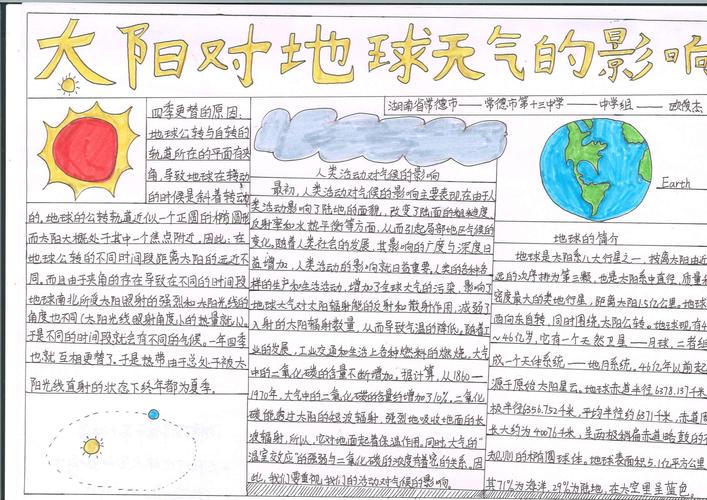 太阳对地球天气的影响
湖南省常德市——常德市第十三中学——中学组——欧俊杰
四季更替的原因:
地球公转与自转的
轨道所在的平面有夹
角,导致地球在转动
的时候是斜着转动
的。地球的公转轨道近似一个正圆的椭圆形
而太阳大概处于其中一个焦点附近。因此:在
地球公转的不同时间段距离太阳的远近不
同。而且由于夹角的存在导致在不同的时间段
地球南北所受太阳照射的强烈和太阳光线的
角度也不同(太阳光线照射角度小的热量就小)。
于是不同的时间段就会有不同的气候。一年四季
也就互相更替了。于是热带由于总处于被太
阳光线直射的状态下终年都为夏季。
人类活动对气候的影响
最初,人类活动对气候的影响主要表现在由于人
类活动影响了陆地的面貌,改变了陆面的粗糙度
反射率和水热平衡等方面,从而引起局部地区气候的
变化。随着人类社会的发展,其影响的广度与深度日
益增加,人类活动的影响就日益重要。人类的各种各
样的生产和生活活动,增加了全球大气的污染,影响了
地球大气对太阳辐射能的反射和散射作用,减弱了
入射的太阳辐射数量,从而导致气温的降低。随着工
业的发展,工业交通和生活上各种燃料的燃烧,大气
中的二氧化碳的含量不断增加。据计算,从1860—
1970年,大气中的二氧化碳的含量约增加了10%。二氧化
碳能透过太阳的短波辐射,强烈地吸收地面的长
波辐射,所以,它对地面起着保温作用。同时大气的“
温室效应”的强弱与二氧化碳的浓度有密的关系。因
此,我们要重视,我们的活动对气候的影响。
Earth
地球的简介
地球是太阳系八大行星之一,按离太阳由近
远的次序排为第三颗,也是太阳系中直径、质量和
密度最大的类地行星,距离太阳1.5亿公里。地球
西向东自转,同时围绕太阳公转。地球现有4
~46亿岁,它有一个天然卫星——月球,二者组
成一个天体系统——地月系统。46亿年以前起
源于原始太阳星云。地球赤道半径6378.137千米
极半径6356.752千米,平均半径约6371千米,赤道周
长大约为40076千米,呈两极稍扁赤道略鼓的不
规则的椭圆球体。地球表面积5.1亿平方公里
其71%为海洋,29%为陆地,在太空里呈蓝色